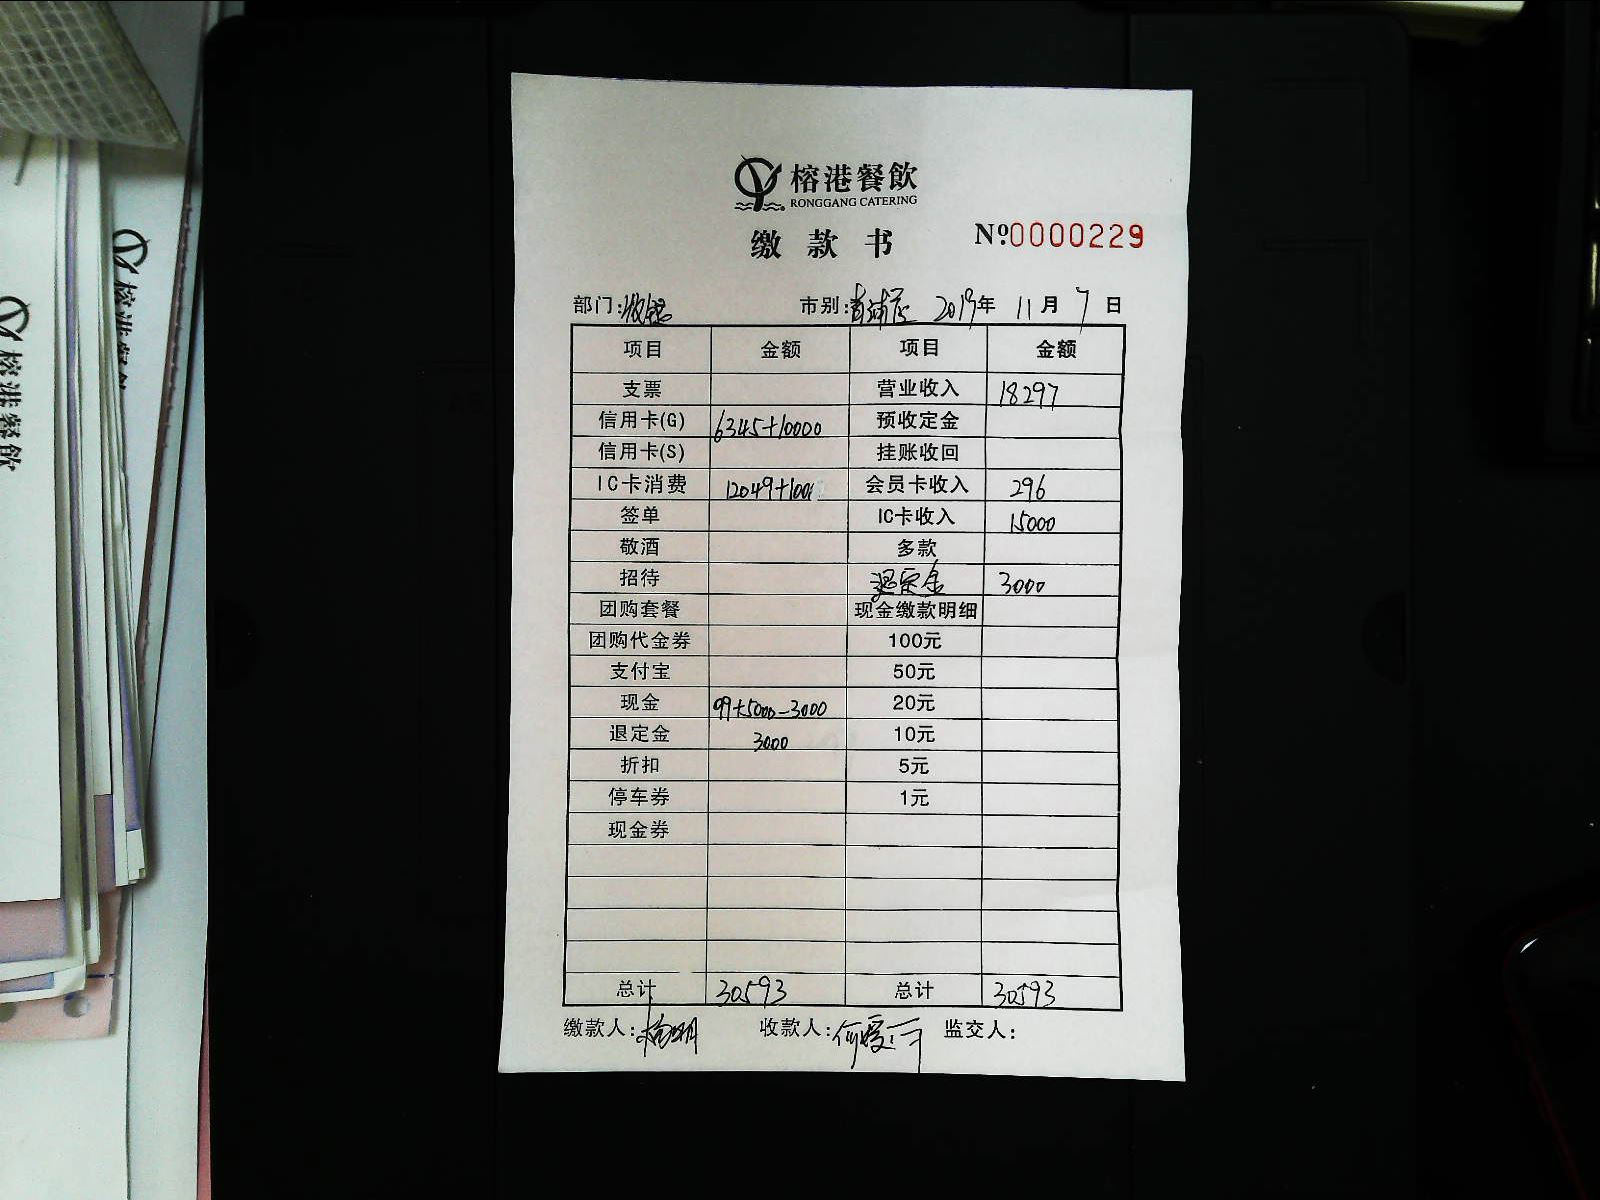 榕港餐飲
RONGGANG CATERING
缴款书 Nº0000229
部门:收银 市别:青浦店 2019年 11月 7日
项目 金额 项目 金额
支票 营业收入 18297
信用卡(G) 6345+10000 预收定金
信用卡(S) 挂账收回
IC卡消费 12049+100 会员卡收入 296
签单 IC卡收入 15000
敬酒 多款
招待 退定金 3000
团购套餐 现金缴款明细
团购代金券 100元
支付宝 50元
现金 99+5000-3000 20元
退定金 3000 10元
折扣 5元
停车券 1元
现金券
总计 30593 总计 30593
缴款人: 收款人:何爱 监交人:
榕港餐飲
榕港餐飲